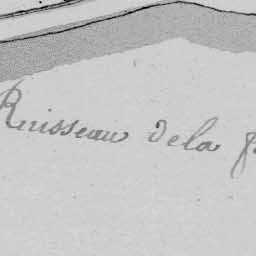 Ruisseau de la